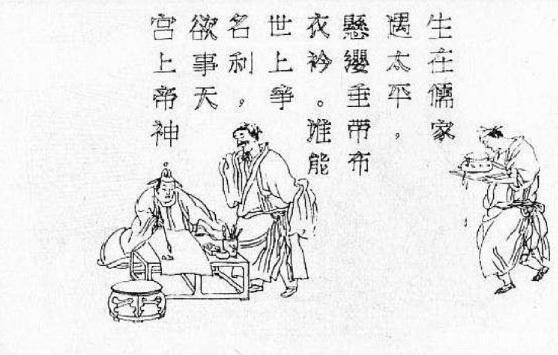 生在儒家
遇太平，
懸纓垂带布
衣衿。谁能
世上爭
名利，
欲事天
宫上帝神